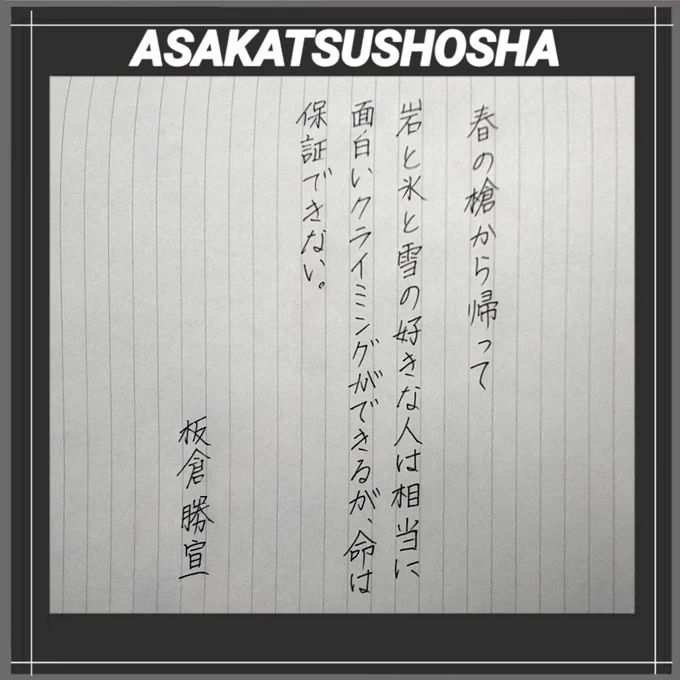 ASAKATSUSHOSHA
春の槍から帰って
岩と氷と雪の好きな人は相当に
面白いクライミングができるが、命は
保証できない。
板倉勝宣